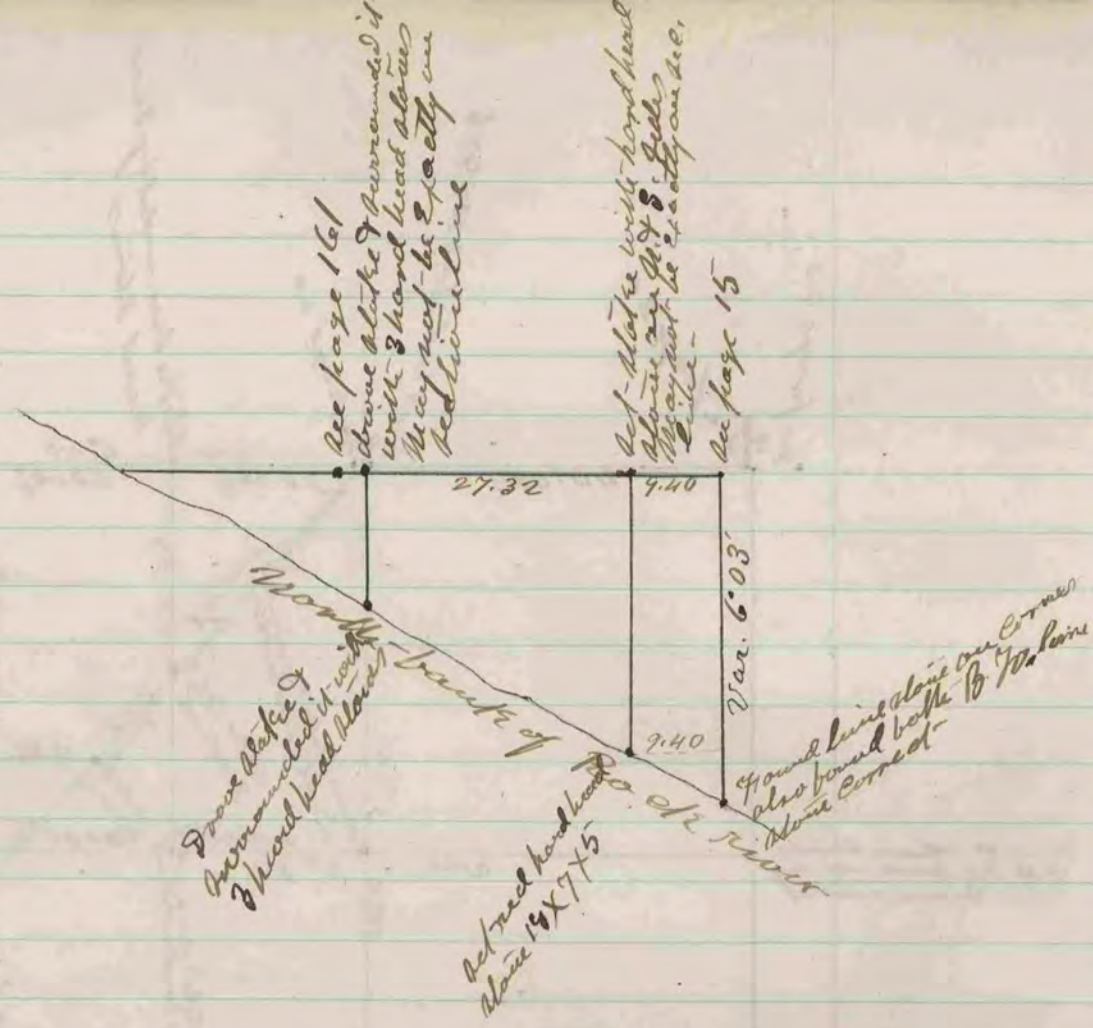 see page 161
drove stake & surrounded it
with 3 hard head stones
May not be Exactly on
section line
set stake with hard head
stone on N & S. sides
May not be Exactly on sec.
line -
on page 15
27.32
9.40
Var. 6°03'
9.40
North bank of Rock river
Drove stake &
surrounded it with
3 hard head stones
set red hard head
stone 18X7X5
Found lime stone on corner
also found both B. To. lime
stone correct